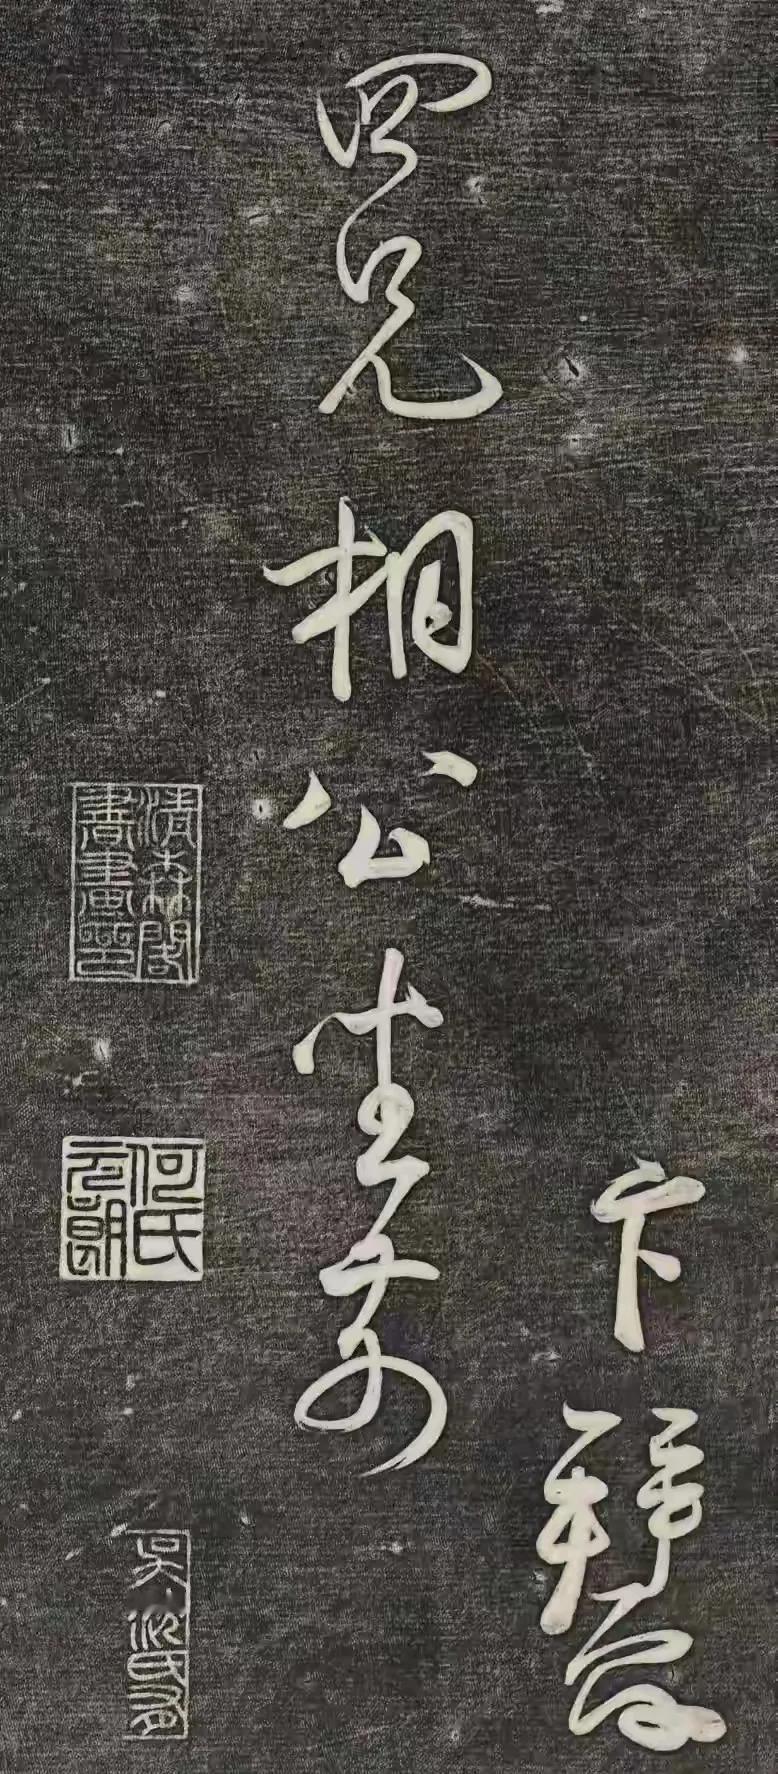 卞拜
四兄相公坐前
清森閣書畫印
何氏元朗